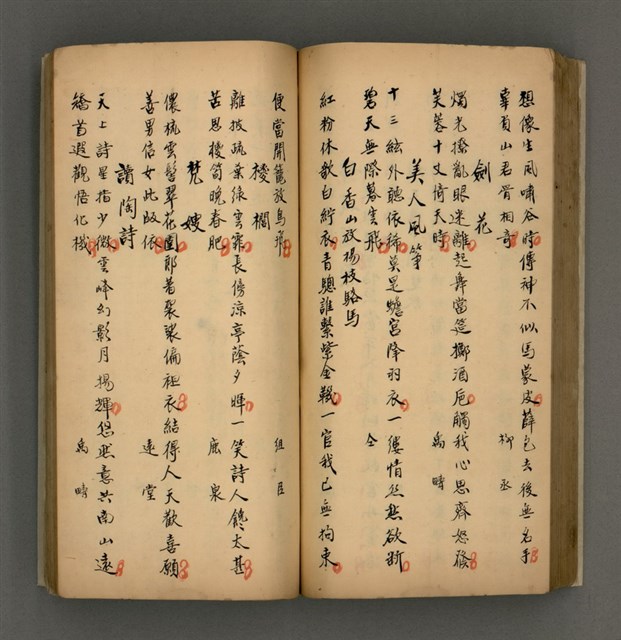 想像生風嘯谷時傳神不似馬蒙皮薛邑去後無名手
辜負山君骨相奇　柳丞
劍花
燭老撩亂眼迷離起舞當筵擲酒卮觸我心思齊怒發
芙蓉十丈倚天時　禹時
美人風箏
十三絃外聽依稀莫是蟾宮降羽衣一縷情絲愁欲斷
碧天無際暮雲飛　仝
白香山放楊枝駱馬
紅粉休歌白紵衣青驄誰繫紫金鞿一官我已無拘束
便當開籠放鳥飛　組臣
椶櫚
離披疏葉綠雲霏長傍涼亭蔭夕暉一笑詩人饞太甚
苦思椶筍晚春肥　鹿泉
梵嫂
儂梳雲髻翠花圍郎著袈裟偏袒衣結得人天歡喜願
善男信女此皈依　遠堂
讀陶詩
天上詩星指少微雲峰幻影月揚輝悠然意共南山遠
矯首遐觀悟化機　禹時